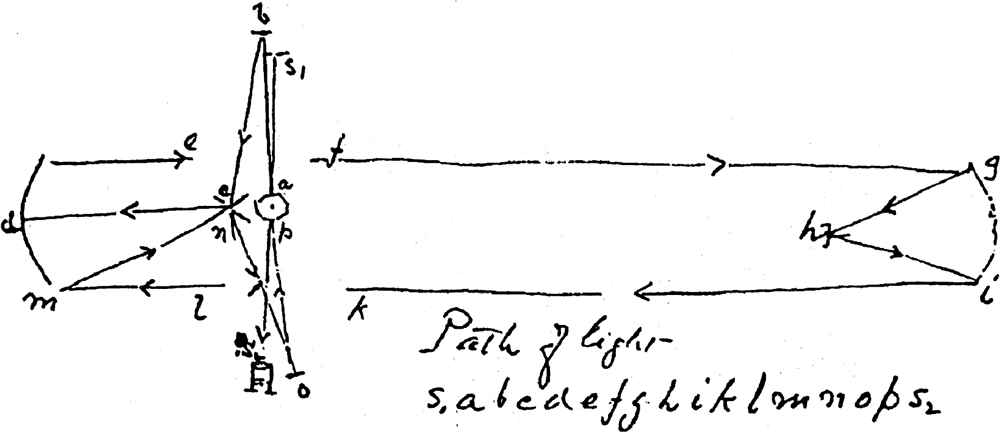 b
s₁
e
f
g
a
c
d
h
n
p
m
l
k
i
s₂
o
Path of light
s₁abcdefghiklmnops₂